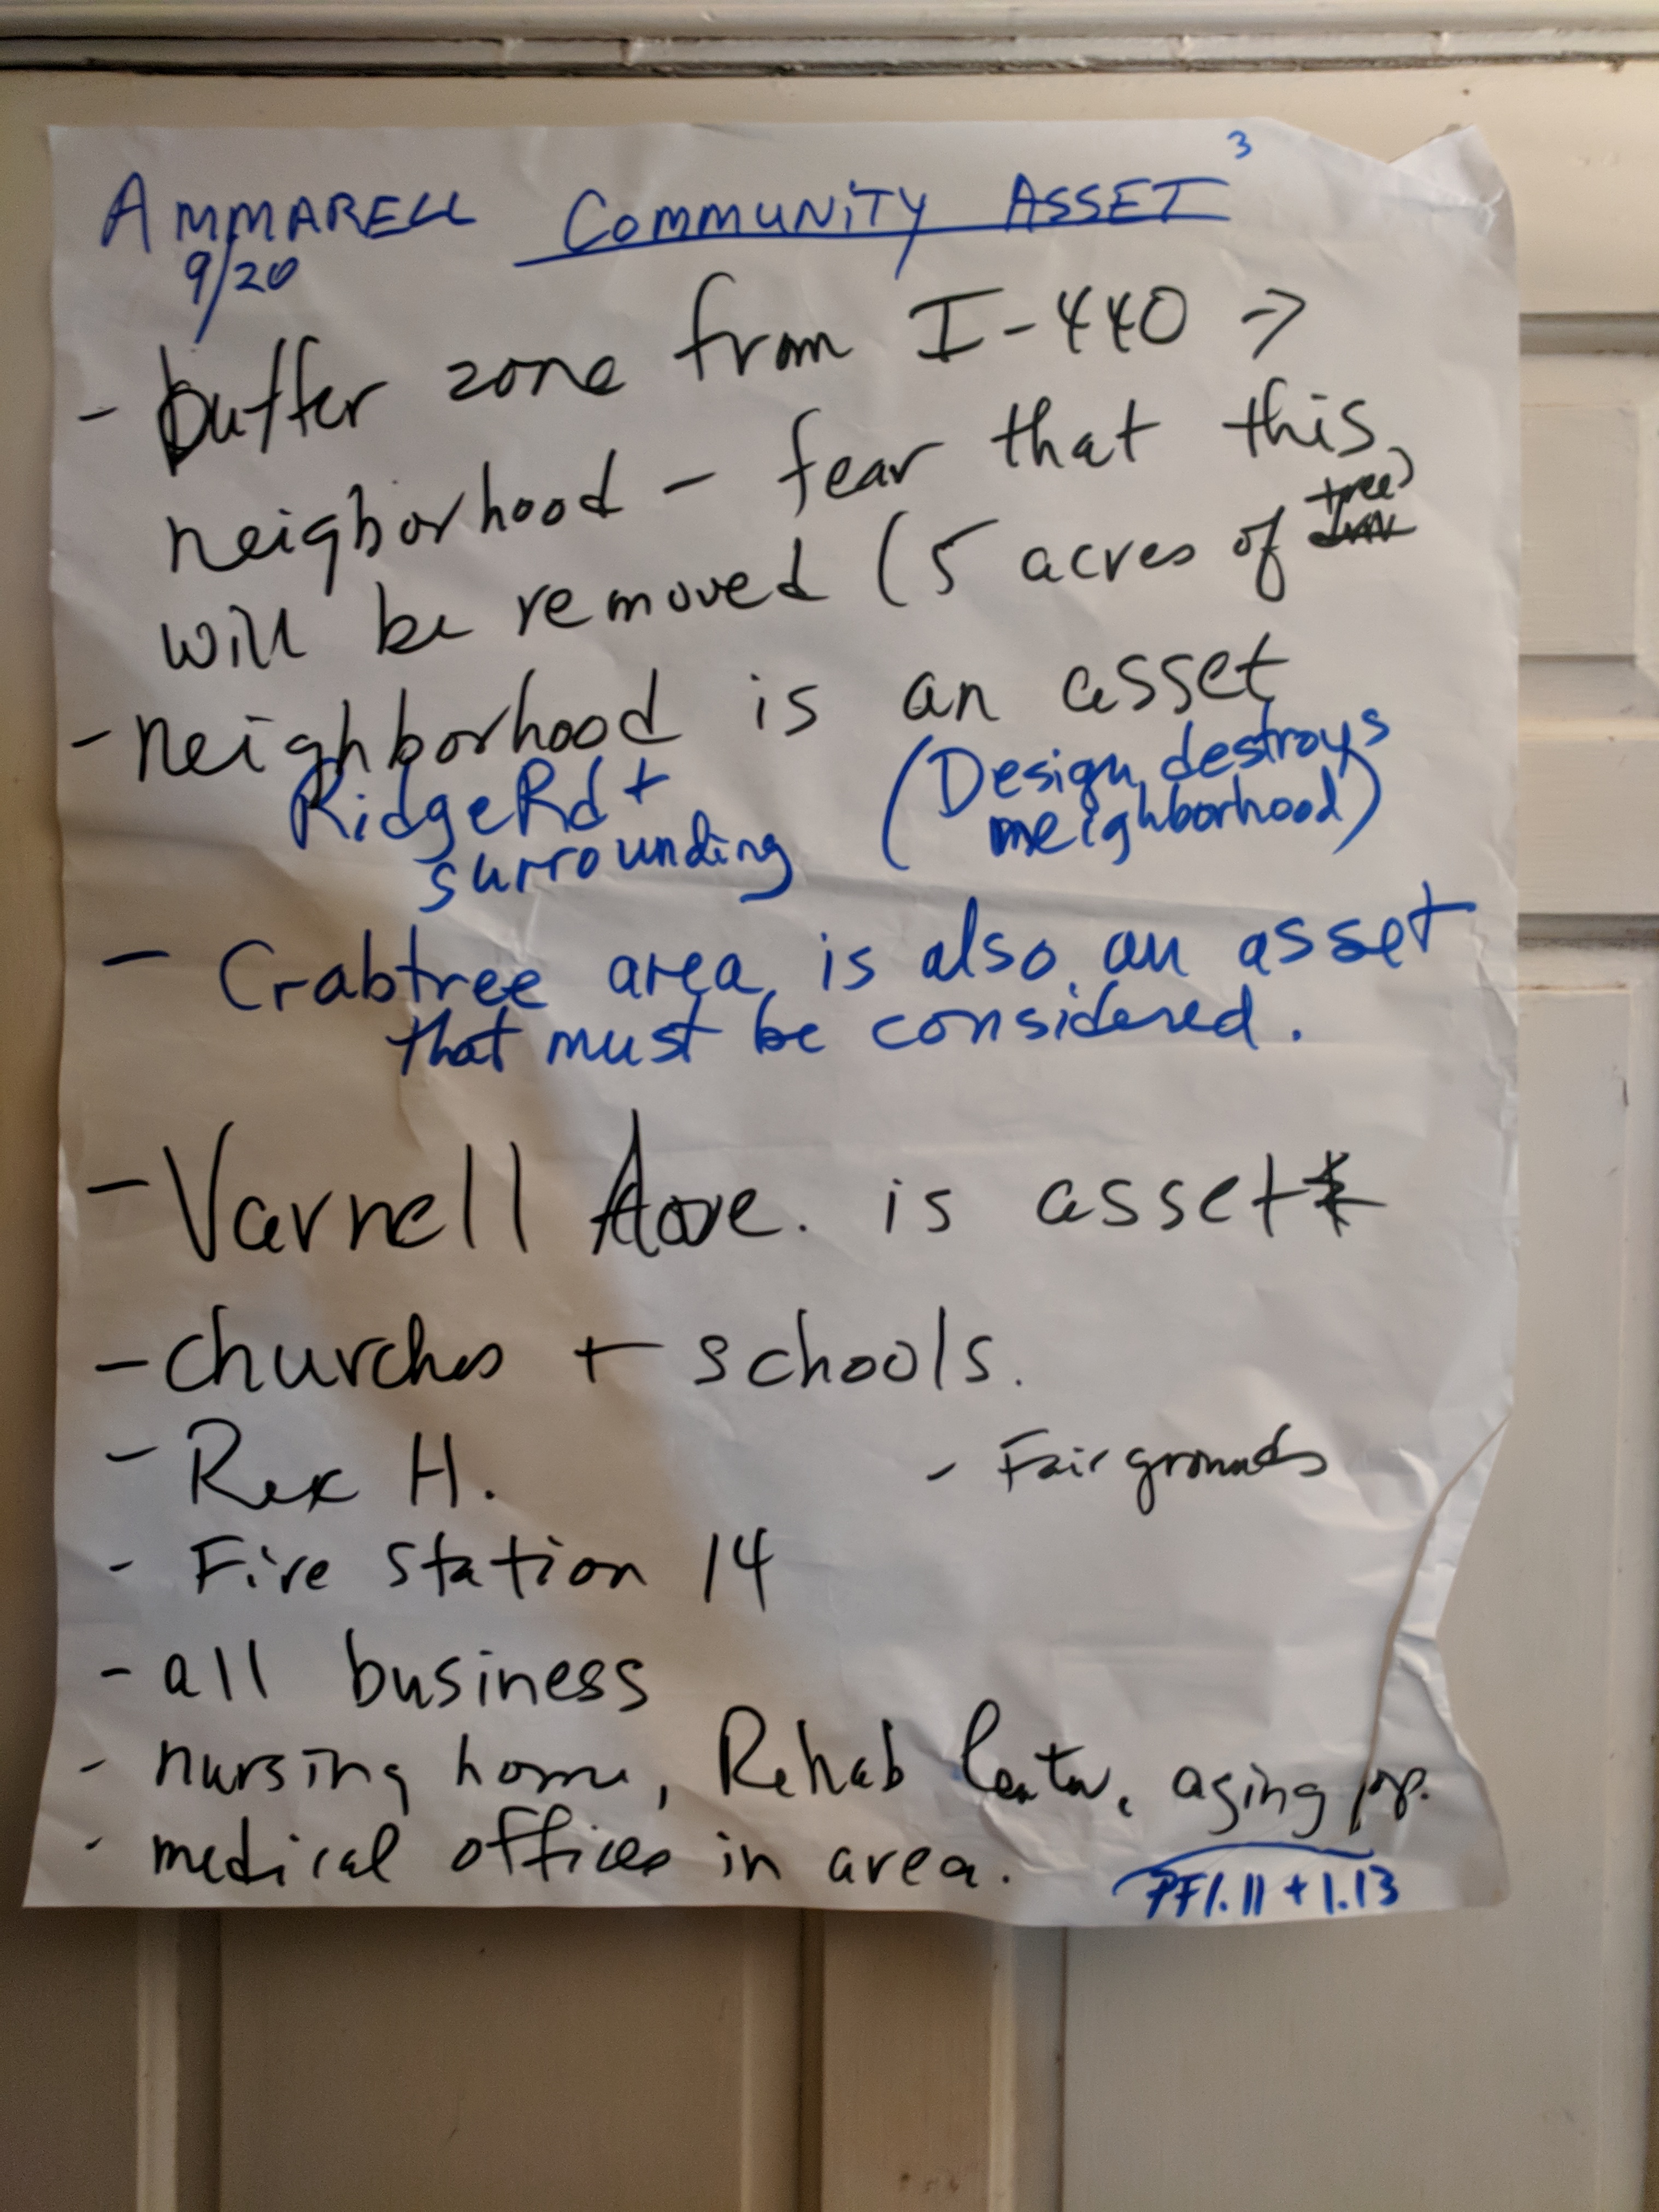 3
AMMARELL COMMUNITY ASSET
9/20
- buffer zone from I-440 →
neigborhood - fear that this
will be removed (5 acres of tree)
- neighborhood is an asset
RidgeRd + surrounding
(Design destroys neighborhood)
- Crabtree area is also an asset
that must be considered.
- Varnell Ave. is asset*
- churches + schools.
- Rex H.
- Fairgrounds
- Fire Station 14
- all business
- nursing home, Rehab Center, aging pop.
- medical offices in area.
PF1.11 + 1.13